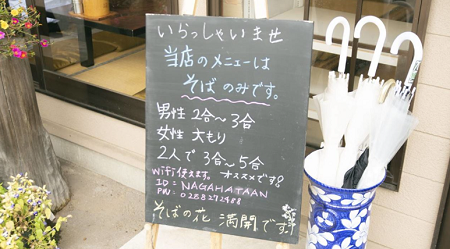 いらっしゃいませ
当店のメニューは
そばのみです。
男性 2合〜3合
女性 大もり
2人で 3合〜5合
WiFi使えます。オススメです!
ID=NAGAHATAAN
PW. 0288272488
そばの花 満開です